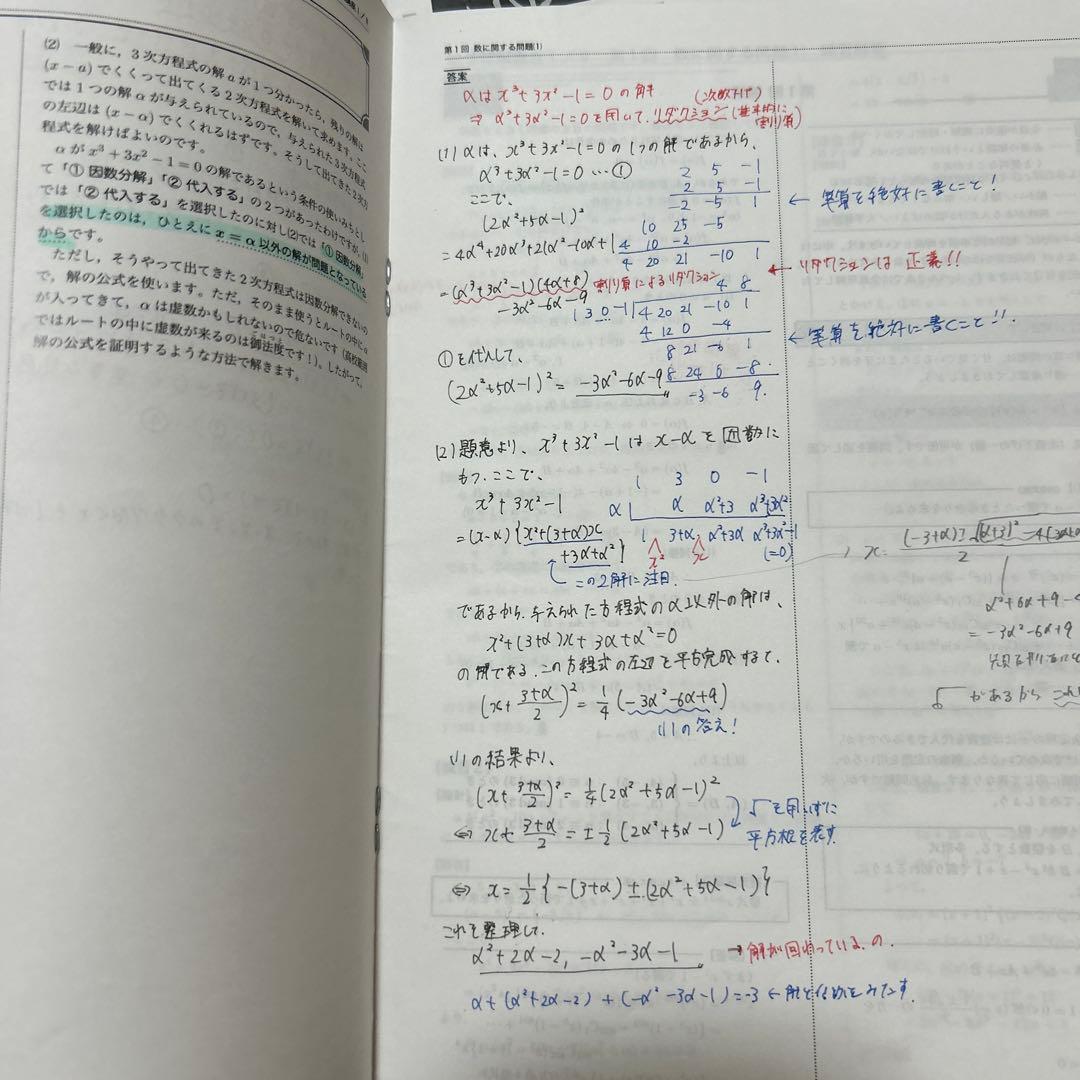 (2) 一般に，3次方程式の解αが1つ分かったら，残りの解は
(x−α)でくくって出てくる2次方程式を解いて求めます。ここ
では1つの解αが与えられているので，与えられた3次方程式
の左辺は(x−α)でくくれるはずです。そうして出てきた2次方
程式を解けばよいのです。
αがx³+3x²−1=0の解であるという条件の使いみちとし
て「①因数分解」「②代入する」の2つがあったわけですが，(1)
では「②代入する」を選択したのに対し(2)では「①因数分解」
を選択したのは，ひとえにx=α以外の解が問題となっている
からです。
ただし，そうやって出てきた2次方程式は因数分解できないの
で，解の公式を使います。ただ，そのまま使うとルートの中にα
が入ってきて，αは虚数かもしれないので危ないです（高校範囲
ではルートの中に虚数が来るのは御法度です！）。したがって，
解の公式を証明するような方法で解きます。
第1回 数に関する問題(1)
答案
αは x³+3x²−1=0 の解
(次数下げ)
⇒ α³+3α²−1=0を用いて，リダクション (基本的に
割り算)
(1) αは、x³+3x²−1=0の1つの解であるから、
α³+3α²−1=0 …①
ここで、
(2α²+5α−1)²
=4α⁴+20α³+21α²−10α+1
=(α³+3α²−1)(4α+8)
−3α²−6α−9
割り算によるリダクション
2 5 −1
2 5 −1
−2 −5 1
10 25 −5
4 10 −2
4 20 21 −10 1
← 筆算を絶対に書くこと！
← リダクションは正義!!
4 8
1 3 0 −1 4 20 21 −10 1
4 12 0 −4
8 21 −6 1
8 24 0 −8
−3 −6 9.
← 筆算を絶対に書くこと!!
①を代入して、
(2α²+5α−1)² = −3α²−6α−9
(2) 題意より、x³+3x²−1は x−αを因数に
もつ。ここで、
x³+3x²−1
=(x−α){x²+(3+α)x
+3α+α²}
この2解に注目.
1 3 0 −1
α α α²+3 α³+3α²
1 3+α α²+3α α³+3α²−1
(=0)
x² x
x= (−3+α)
2
α²+6α+9−
=−3α²−6α+9
√ があるから
であるから、与えられた方程式のα以外の解は、
x²+(3+α)x+3α+α²=0
の解である。この方程式の左辺を平方完成すると、
(x+ 3+α/2)² = 1/4(−3α²−6α+9)
(1)の答え！
(1)の結果より、
(x+ 3+α/2)² = 1/4(2α²+5α−1)²
⇔ x+ 3+α/2 = ±1/2(2α²+5α−1)
√を用いずに
平方根を表す
⇔ x= 1/2{−(3+α)±(2α²+5α−1)}
これを整理して、
α²+2α−2, −α²−3α−1
→解が回っている。の.
α+(α²+2α−2)+(−α²−3α−1)=−3 ←解と係数をみたす.